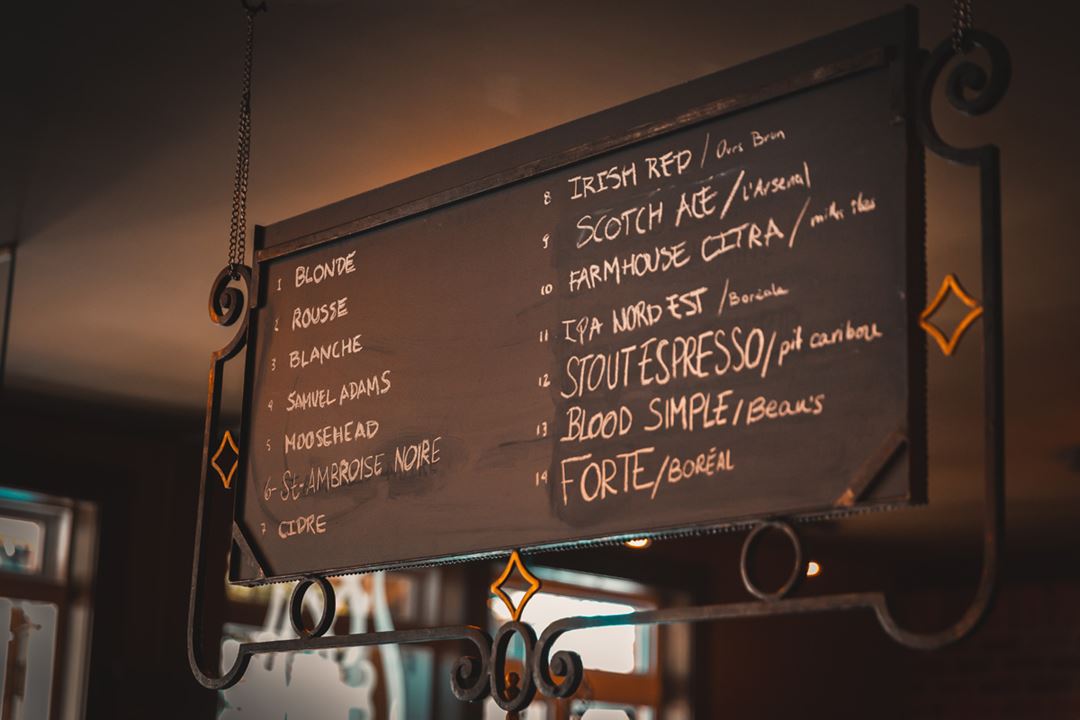 1 BLONDE
2 ROUSSE
3 BLANCHE
4 SAMUEL ADAMS
5 MOOSEHEAD
6- St-AMBROISE NOIRE
7 CIDRE
8 IRISH RED / Ours Brun
9 SCOTCH ALE / L'Arsenal
10 FARMHOUSE CITRA / milles îles
11 IPA NORD EST / Boréale
12 STOUT ESPRESSO / pit caribou
13 BLOOD SIMPLE / Beau's
14 FORTE / BORÉAL